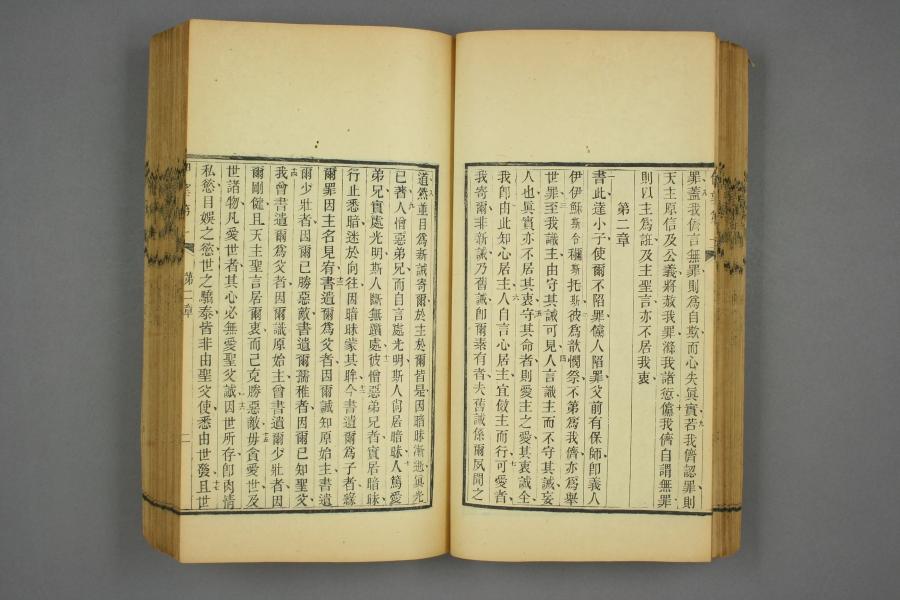 罪蓋我儕言無罪則爲自欺而心失眞實若我儕認罪則
天主原信及公義將赦我罪滌我諸愆儻我儕自謂無罪
則以主爲誑及主聖言亦不居我衷
第二章
書此達小子使爾不陷罪儻人陷罪父前有保師卽義人
伊伊穌斯合穪斯托斯彼爲歆憫祭不第爲我儕亦爲舉
世罪至我識主由守其誡可見人言識主而不守其誡妄
人也眞實亦不居其衷守其命者則愛主之愛其衷誠全
我卽由此知心居主人自言心居主宜倣主而行可愛者
我寄爾非新誡乃舊誡卽爾素有者夫舊誡係爾夙聞之
道然重目爲新誡寄爾於主於爾皆是因暗昧漸逝眞光
已著人憎惡弟兄而自言處光明斯人尙居暗昧人篤愛
弟兄實處光明斯人斷無躓處彼憎惡弟兄者實居暗昧
行止悉暗迷於向往因暗昧蒙其眸今書遺爾爲子者緣
爾罪因主名見宥書遺爾爲父者因爾誠知原始主書遺
爾少壯者因爾已勝惡敵書遺爾孺稚者因爾已知聖父
我曾書遺爾爲父者因爾識原始主曾書遺爾少壯者因
爾剛健且天主聖言居爾衷而己克勝惡敵毋貪愛世及
世諸物凡愛世者其心必無愛聖父誠因世所存卽肉情
私慾目娛之慾世之驕泰皆非由聖父使悉由世發且世
第二章